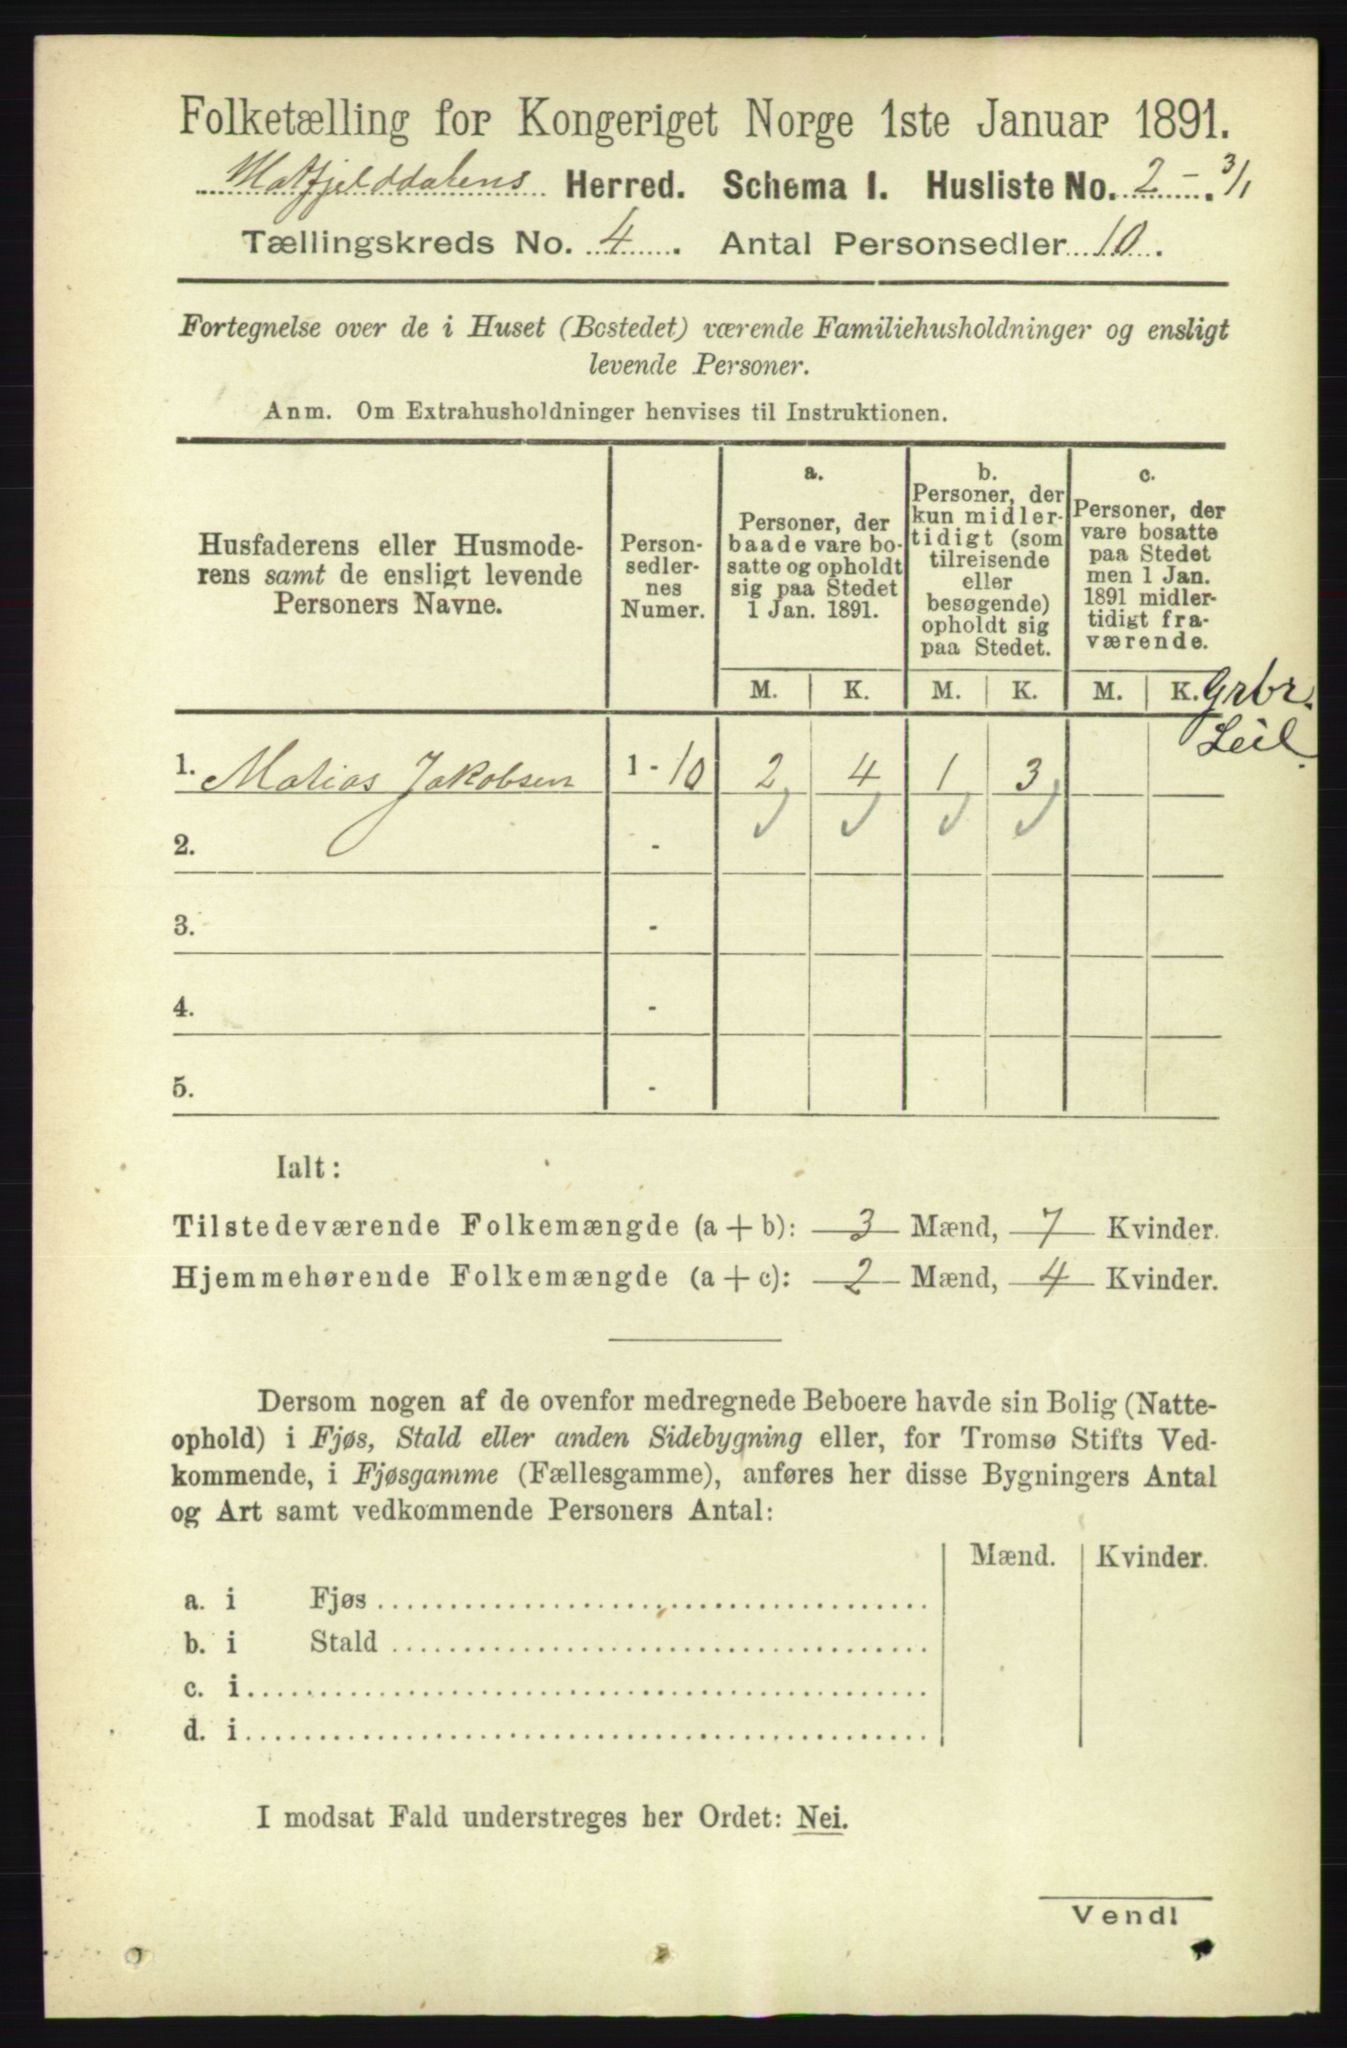 Folketælling for Kongeriget Norge 1ste Januar 1891.
Hatfjelddalens Herred. Schema I. Husliste No. 2 - 3/1
Tællingskreds No. 4. Antal Personsedler 10.
Fortegnelse over de i Huset (Bostedet) værende Familiehusholdninger og ensligt
levende Personer.
Anm. Om Extrahusholdninger henvises til Instruktionen.
Husfaderens eller Husmode-
rens samt de ensligt levende
Personers Navne.
Person-
sedler-
nes
Numer.
a.
Personer, der
baade vare bo-
satte og opholdt
sig paa Stedet
1 Jan. 1891.
b.
Personer, der
kun midler-
tidigt (som
tilreisende
eller
besøgende)
opholdt sig
paa Stedet.
c.
Personer, der
vare bosatte
paa Stedet
men 1 Jan.
1891 midler-
tidigt fra-
værende.
M. K. M. K. M. K. Grbr.
Leil.
1. Matias Jakobsen 1 - 10 2 4 1 3
2. -
3. -
4. -
5. -
Ialt:
Tilstedeværende Folkemængde (a + b): 3 Mænd, 7 Kvinder.
Hjemmehørende Folkemængde (a + c): 2 Mænd, 4 Kvinder.
Dersom nogen af de ovenfor medregnede Beboere havde sin Bolig (Natte-
ophold) i Fjøs, Stald eller anden Sidebygning eller, for Tromsø Stifts Ved-
kommende, i Fjøsgamme (Fællesgamme), anføres her disse Bygningers Antal
og Art samt vedkommende Personers Antal:
Mænd. Kvinder.
a. i Fjøs
b. i Stald
c. i
d. i
I modsat Fald understreges her Ordet: Nei.
Vend!